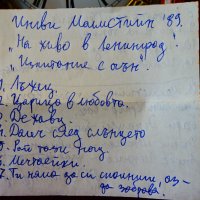 Ингви Малмстийн '89.
„На живо в Ленинград".
„Изпитание с огън".
1. Лъжец
2. Царица в любовта.
3. Дежаву.
4. Далеч след слънцето
5. Рай тази нощ.
6. Мечтаейки.
7. Ти няма да си спомниш, аз-
да забравя.